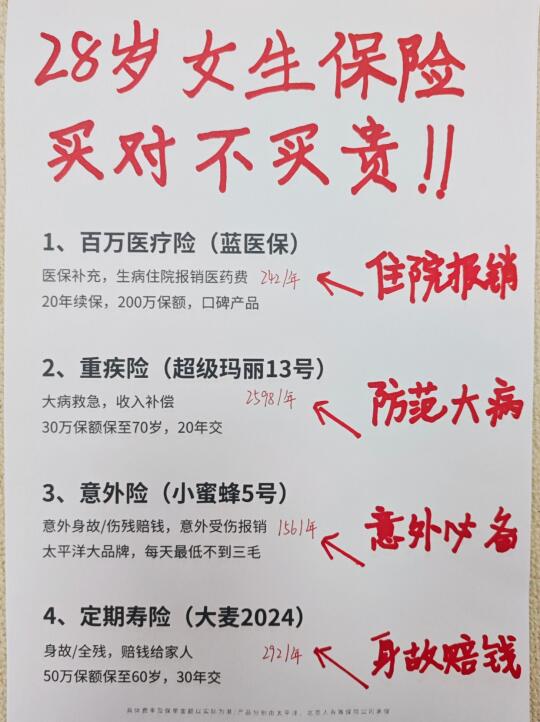 28岁女生保险
买对不买贵!!
1、百万医疗险（蓝医保）
医保补充，生病住院报销医药费 242/年
20年续保，200万保额，口碑产品
住院报销
2、重疾险（超级玛丽13号）
大病救急，收入补偿 2598/年
30万保额保至70岁，20年交
防范大病
3、意外险（小蜜蜂5号）
意外身故/伤残赔钱，意外受伤报销 156/年
太平洋大品牌，每天最低不到三毛
意外必备
4、定期寿险（大麦2024）
身故/全残，赔钱给家人 292/年
50万保额保至60岁，30年交
身故赔钱